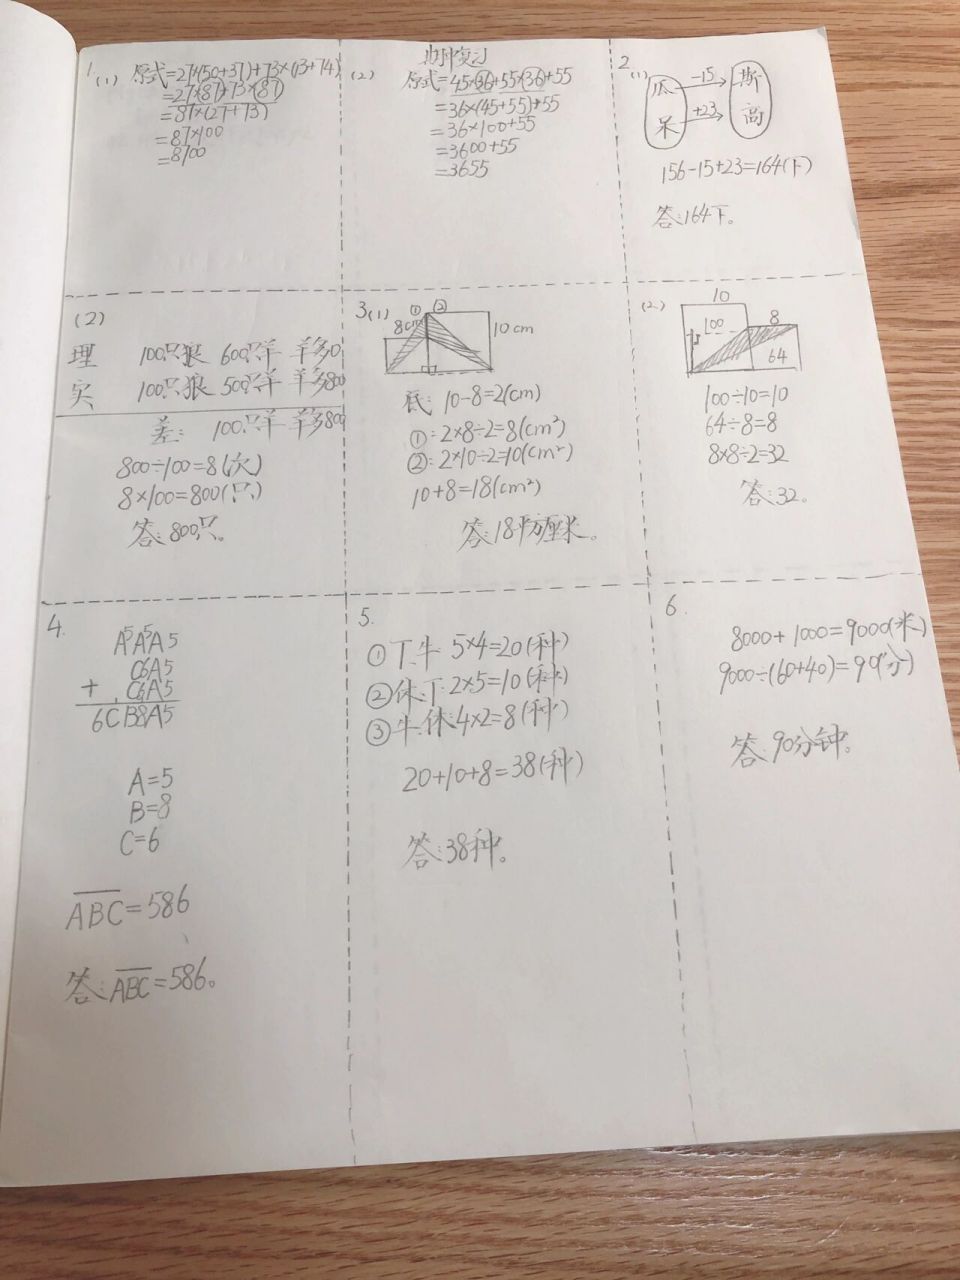 期中复习
1.
(1) 原式=27×(50+37)+73×(13+74)
=27×(87)+73×(87)
=87×(27+73)
=87×100
=8700
(2) 原式=45×36+55×36+55
=36×(45+55)+55
=36×100+55
=3600+55
=3655
2.
(1) 瓜 -15 斯
呆 +23 高
156-15+23=164(下)
答:164下。
(2)
理 100只狼 600只羊 羊多0
实 100只狼 500只羊 羊多800
差: 100只羊 羊多800
800÷100=8(次)
8×100=800(只)
答:800只。
3(1) ① ②
8cm 10cm
底: 10-8=2(cm)
①:2×8÷2=8(cm²)
②:2×10÷2=10(cm²)
10+8=18(cm²)
答:18平方厘米。
(2)
10
100 8
64
100÷10=10
64÷8=8
8×8÷2=32
答:32。
4.
A⁵A⁵A5
C6A5
+ C6A5
6CB8A5
A=5
B=8
C=6
ABC=586
答:ABC=586。
5.
①T.牛 5×4=20(种)
②休.T 2×5=10(种)
③牛.休:4×2=8(种)
20+10+8=38(种)
答:38种。
6.
8000+1000=9000(米)
9000÷(60+40)=90(分)
答:90分钟。